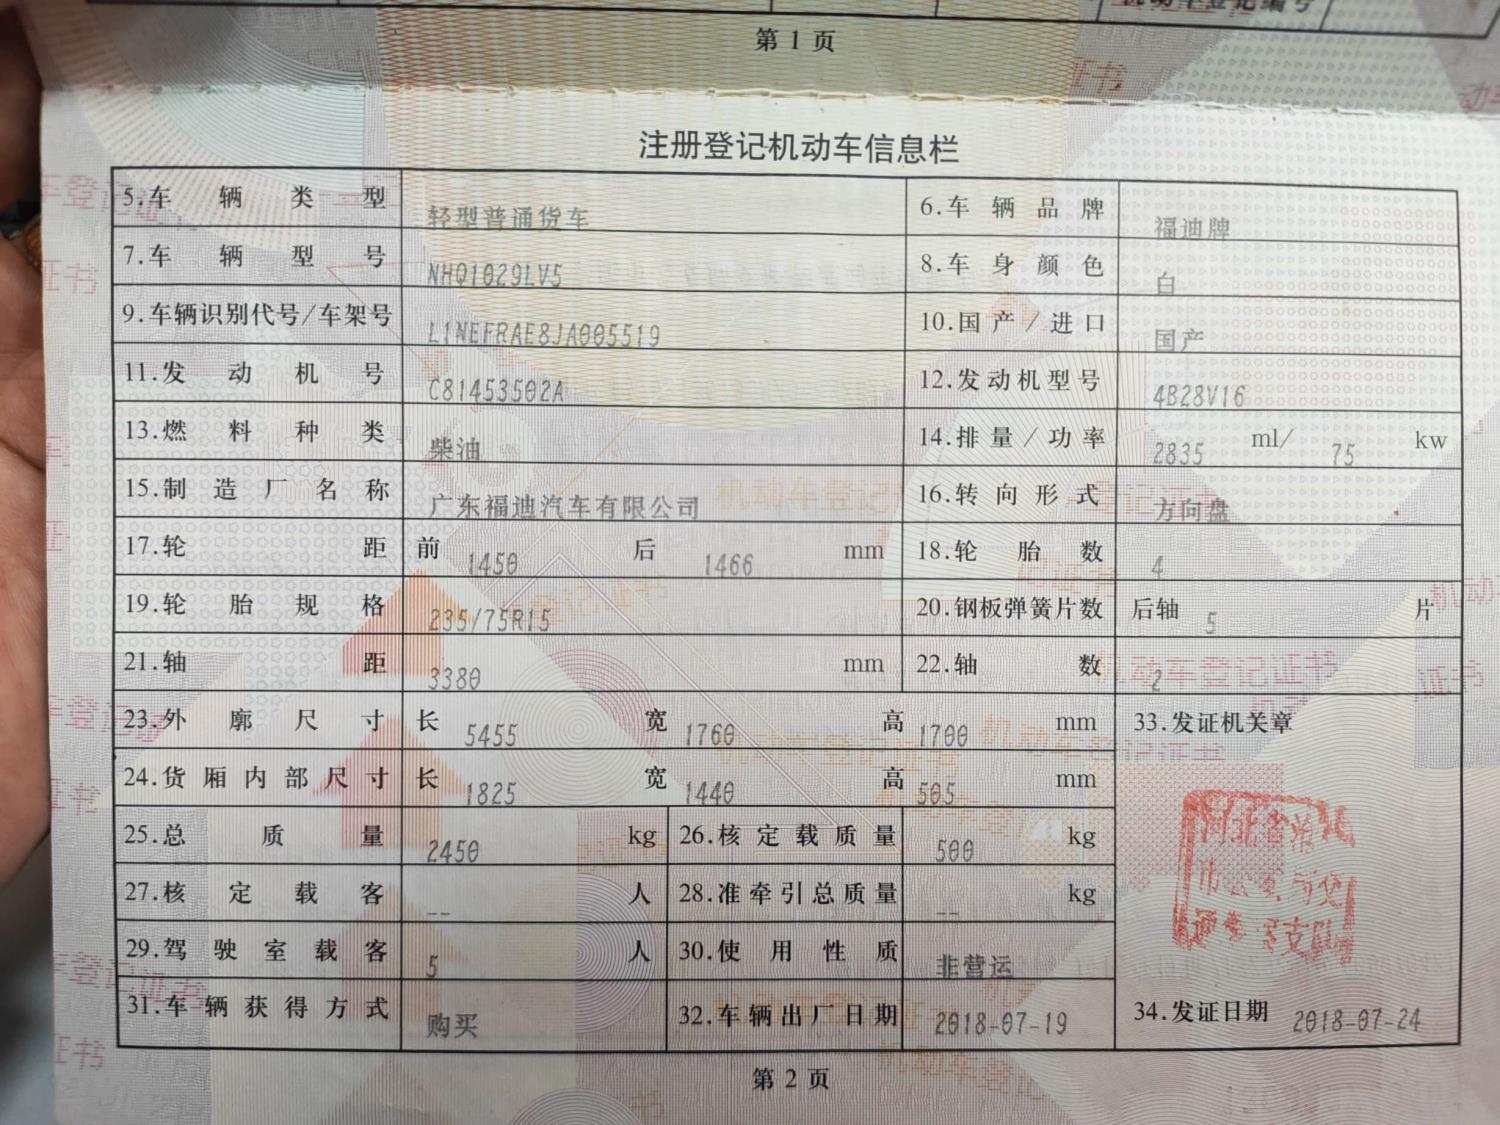 机动车登记编号
第 1 页
注册登记机动车信息栏
5.车辆类型 轻型普通货车 6.车辆品牌 福迪牌
7.车辆型号 NHQ1029LV5 8.车身颜色 白
9.车辆识别代号/车架号 L1NEFRAE8JA005519 10.国产/进口 国产
11.发动机号 C81453502A 12.发动机型号 4B28V16
13.燃料种类 柴油 14.排量/功率 2835 ml/ 75 kw
15.制造厂名称 广东福迪汽车有限公司 16.转向形式 方向盘
17.轮距 前 1450 后 1466 mm 18.轮胎数 4
19.轮胎规格 235/75R15 20.钢板弹簧片数 后轴 5 片
21.轴距 3380 mm 22.轴数 2
23.外廓尺寸 长 5455 宽 1760 高 1700 mm 33.发证机关章
24.货厢内部尺寸 长 1825 宽 1440 高 505 mm
25.总质量 2450 kg 26.核定载质量 500 kg
27.核定载客 -- 人 28.准牵引总质量 -- kg
29.驾驶室载客 5 人 30.使用性质 非营运
31.车辆获得方式 购买 32.车辆出厂日期 2018-07-19 34.发证日期 2018-07-24
第 2 页